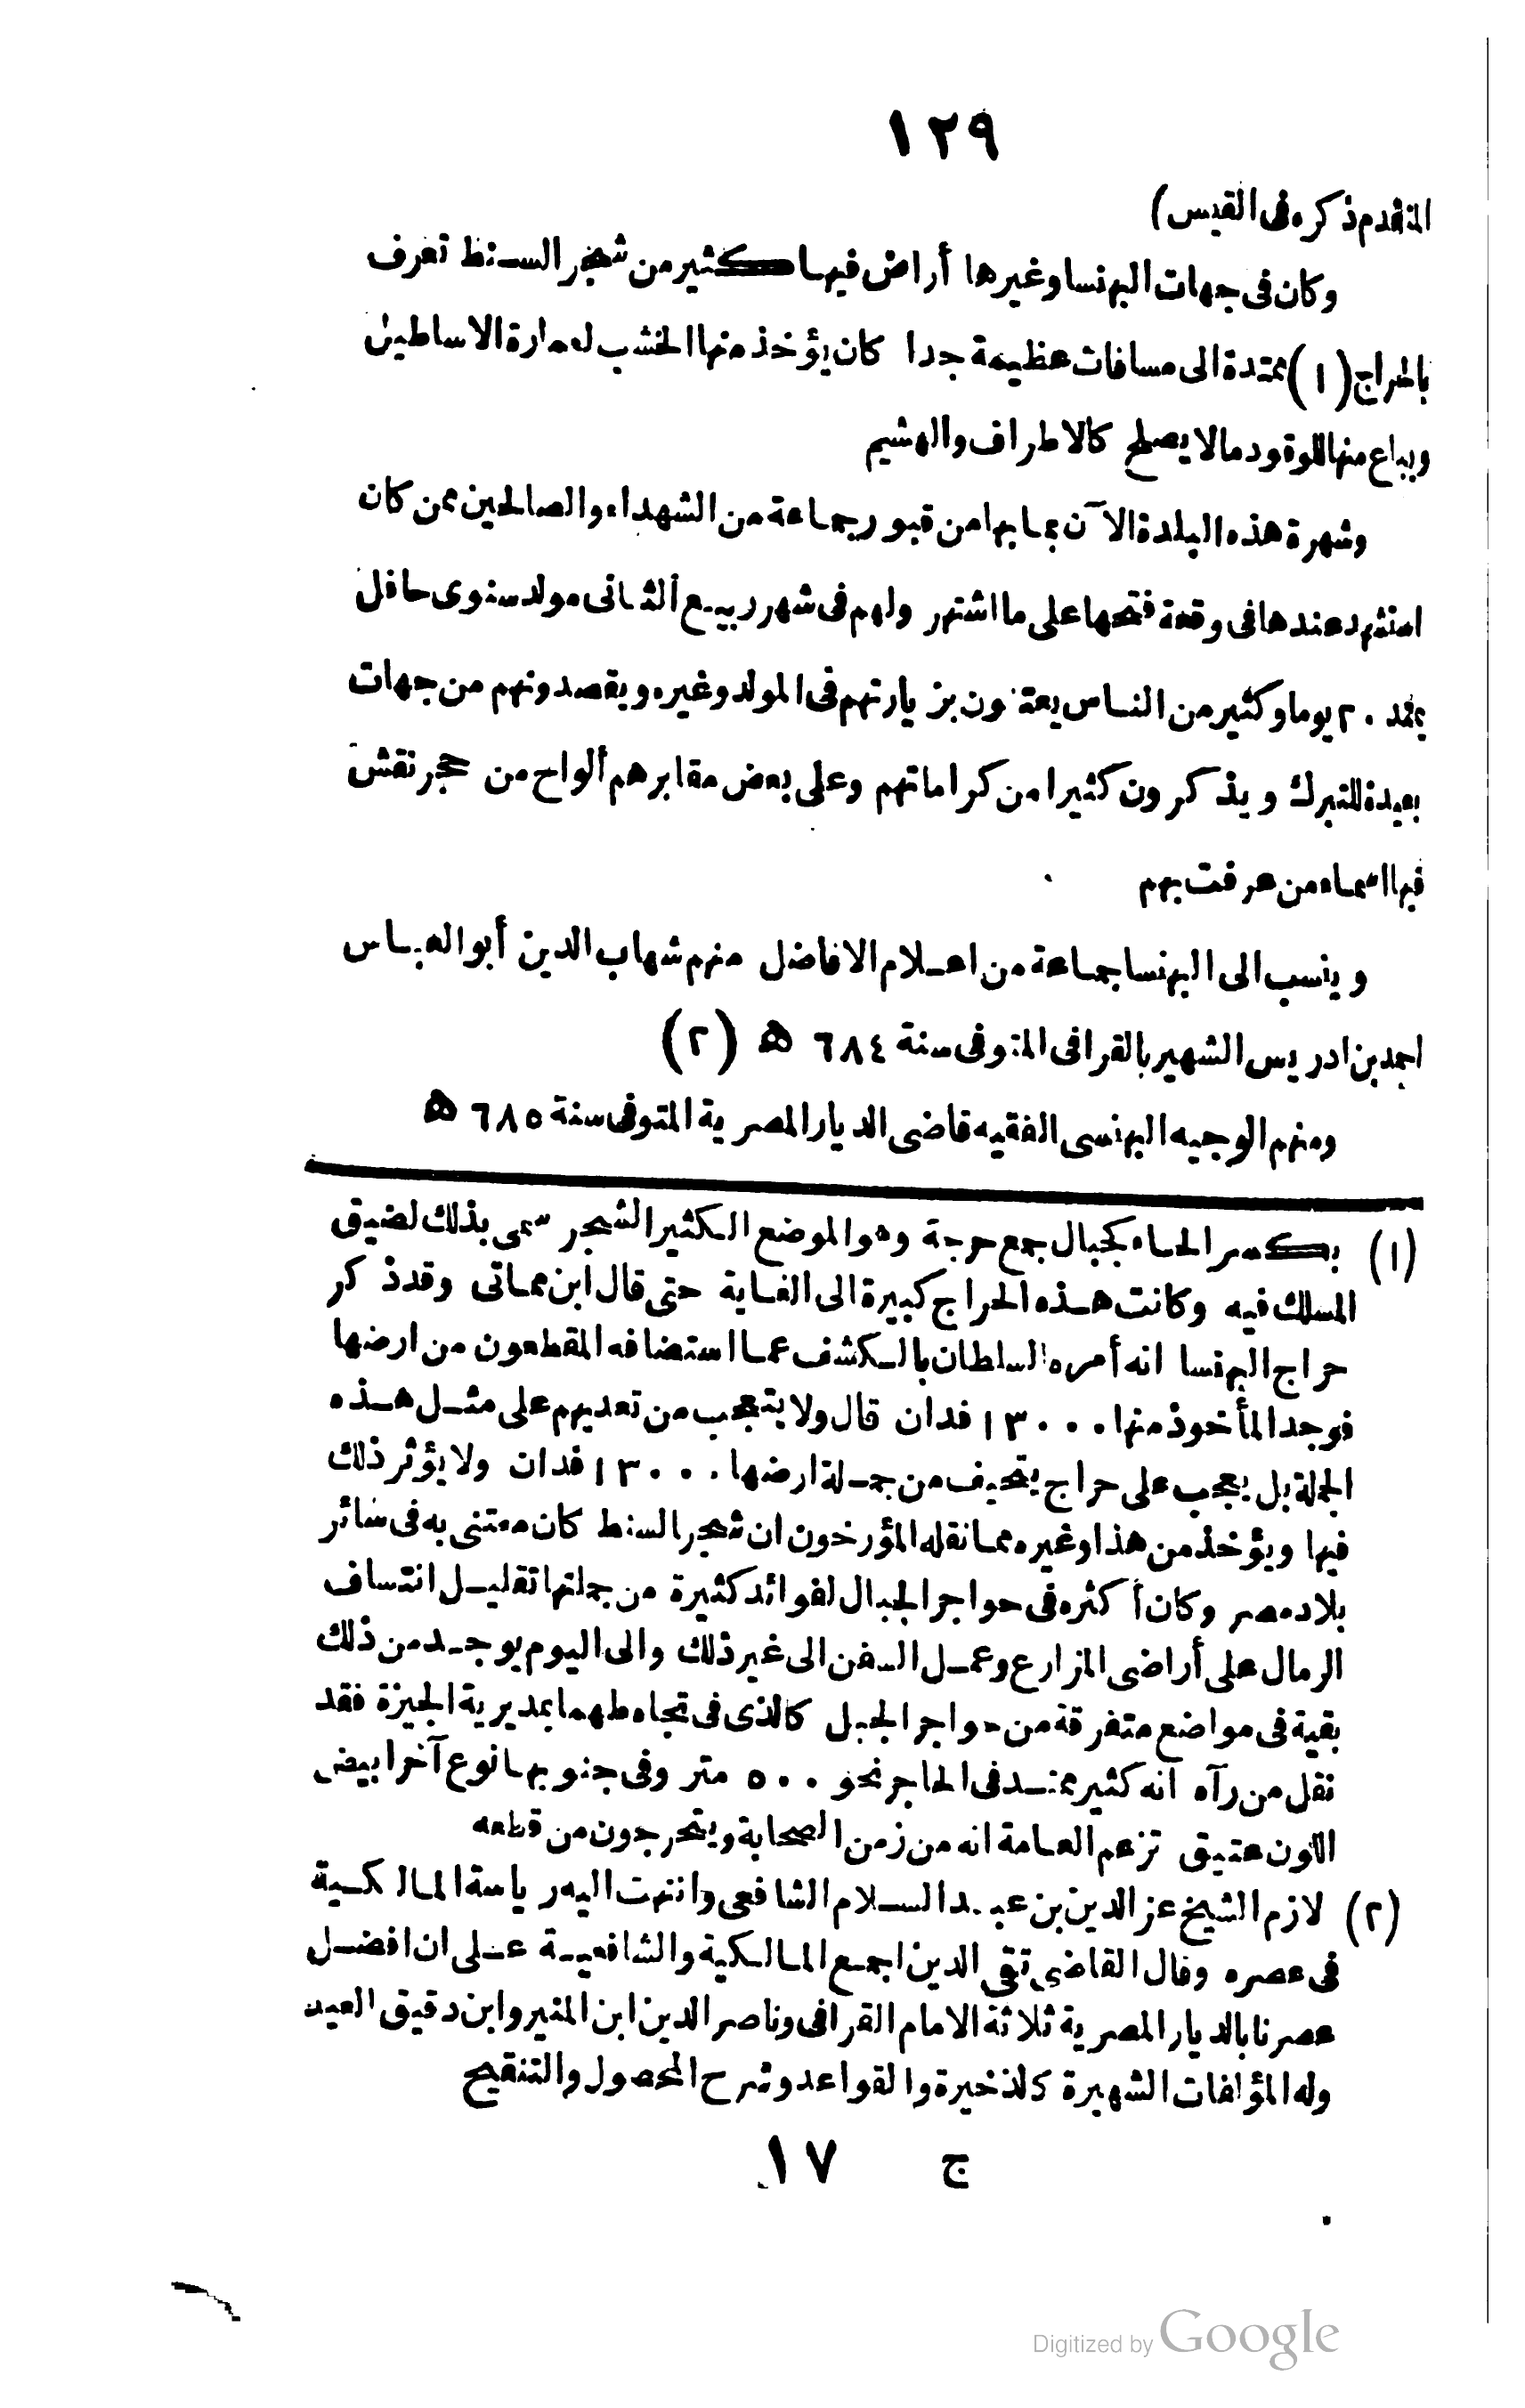 ١٢٩
المتقدم ذكره فى القيس)
وكان فى جهات البهنسا وغيرها أراض فيها كثير من شجر السنط تعرف
بالحراج (١) ممتدة الى مسافات عظيمة جدا كان يؤخذ منها الخشب لعمارة الاساطيل
ويباع منها للوقود ما لا يصلح كالاطراف والهشيم
وشهرة هذه البلدة الآن بما بها من قبور جماعة من الشهداء والصالحين ممن كان
استشهد عندها فى وقعة فتحها على ما اشتهر ولهم فى شهر ربيع الثانى مولد سنوى حافل
يمتد ٢٠ يوما وكثير من الناس يعتنون بزيارتهم فى المولد وغيره ويقصدونهم من جهات
بعيدة للتبرك ويذكرون كثيرا من كراماتهم وعلى بعض مقابرهم ألواح من حجر نقش
فيها اسماء من عرفت بهم
وينسب الى البهنسا جماعة من اعلام الافاضل منهم شهاب الدين أبو العباس
احمد بن ادريس الشهير بالقرافى المتوفى سنة ٦٨٤ ه (٢)
ومنهم الوجيه البهنسى الفقيه قاضى الديار المصرية المتوفى سنة ٦٨٥ ه
(١) بكسر الحاء كجبال جمع حرجة وهو الموضع الكثير الشجر سمى بذلك لضيق
المسلك فيه وكانت هذه الحراج كبيرة الى الغاية حتى قال ابن مماتى وقد ذكر
حراج البهنسا انه أمره السلطان بالكشف عما استضافه المقطعون من ارضها
فوجد المأخوذ منها ١٣٠٠٠ فدان قال ولا يتعجب من تعديهم على مثل هذه
الجملة بل يعجب على حراج يتحيف من جملة ارضها ١٣٠٠٠ فدان ولا يؤثر ذلك
فيها ويؤخذ من هذا وغيره مما نقله المؤرخون ان شجر السنط كان معتنى به فى سائر
بلاد مصر وكان أكثره فى حواجر الجبال لفوائد كثيرة من جملتها تقليل انتساف
الرمال على أراضى المزارع وعمل السفن الى غير ذلك والى اليوم يوجد من ذلك
بقية فى مواضع متفرقة من حواجر الجبل كالذى فى تجاه طهما بمديرية الجيزة فقد
نقل من رآه انه كثير ممتد فى الحاجر نحو ٥٠٠ متر وفى جنوبها نوع آخر ابيض
اللون عتيق تزعم العامة انه من زمن الصحابة ويتحرجون من قطعه
(٢) لازم الشيخ عز الدين بن عبد السلام الشافعى وانتهت اليه رياسة المالكية
فى عصره وقال القاضى تقى الدين اجمع المالكية والشافعية على ان افضل
عصرنا بالديار المصرية ثلاثة الامام القرافى وناصر الدين ابن المنير وابن دقيق العيد
وله المؤلفات الشهيرة كالذخيرة والقواعد وشرح المحصول والتنقيح
ج ١٧
Digitized by Google